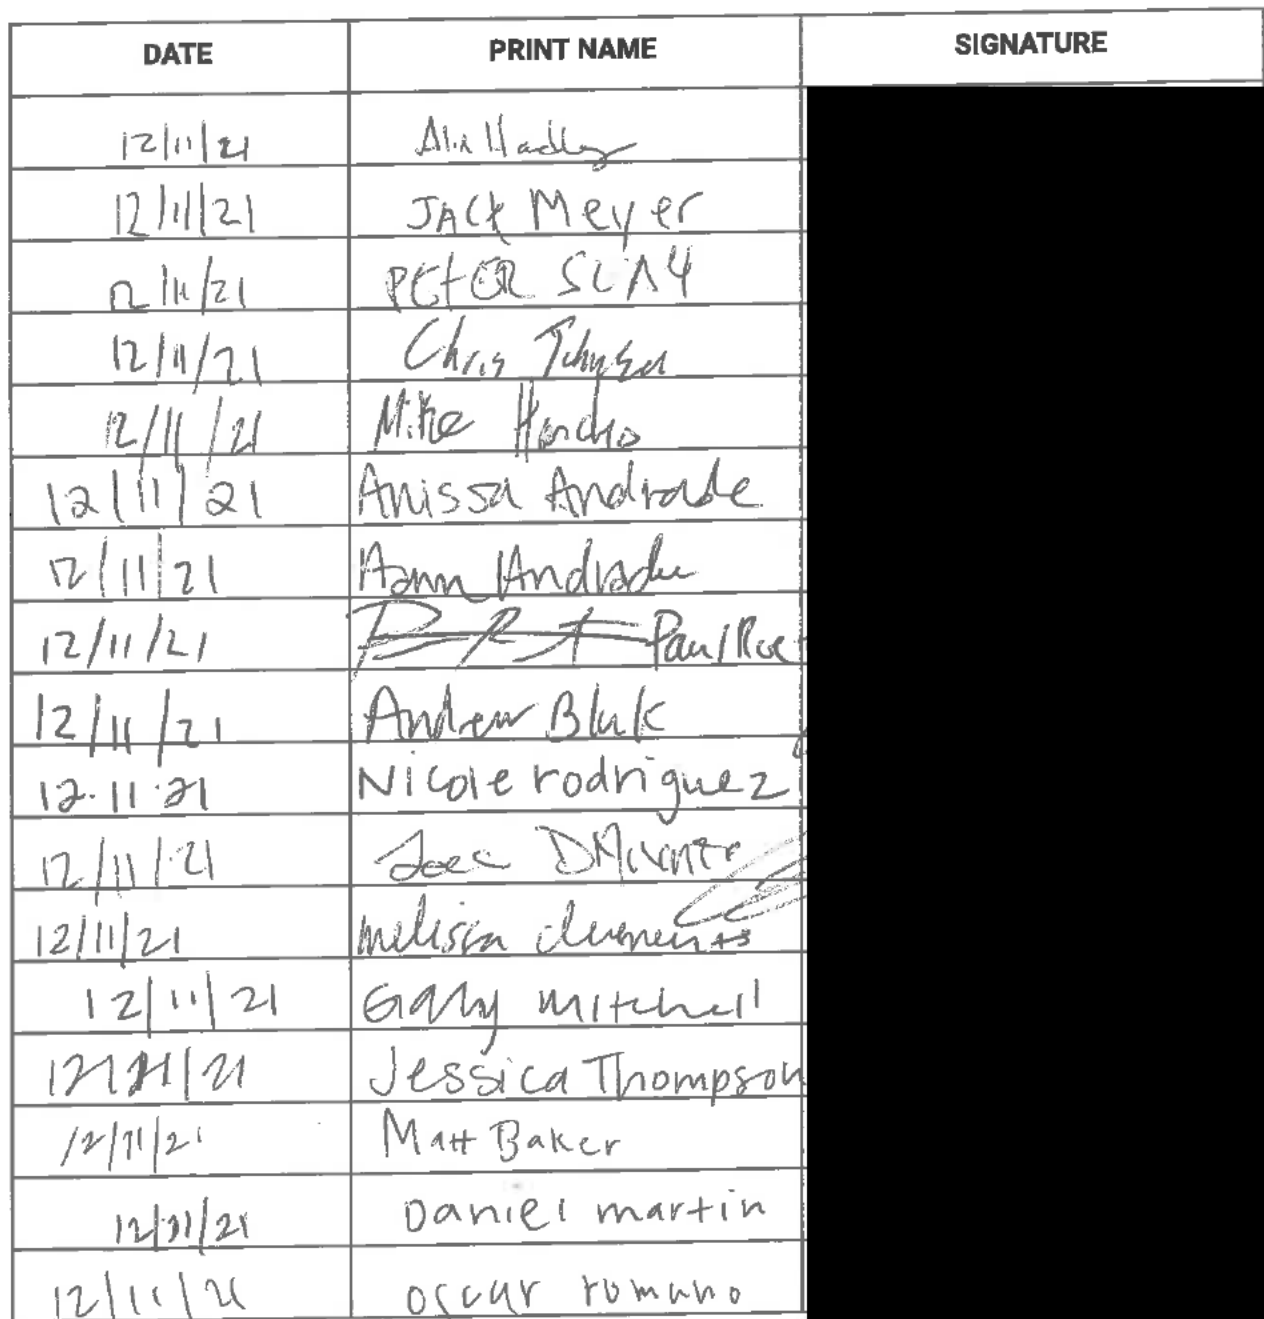 DATE PRINT NAME SIGNATURE
12/11/21 Hadley
12/11/21 JACK Meyer
12/11/21 PETER SLAY
12/11/21 Chris
12/11/21 Mike
12/11/21 Anissa Andrade
12/11/21 Andrade
12/11/21 Paul
12/11/21 Andrew
12.11.21 Nicole rodriguez
12/11/21
12/11/21 melissa clements
12/11/21 Gary mitchell
12/11/21 Jessica Thompson
12/11/21 Matt Baker
12/11/21 Daniel martin
12/11/21 oscar romano